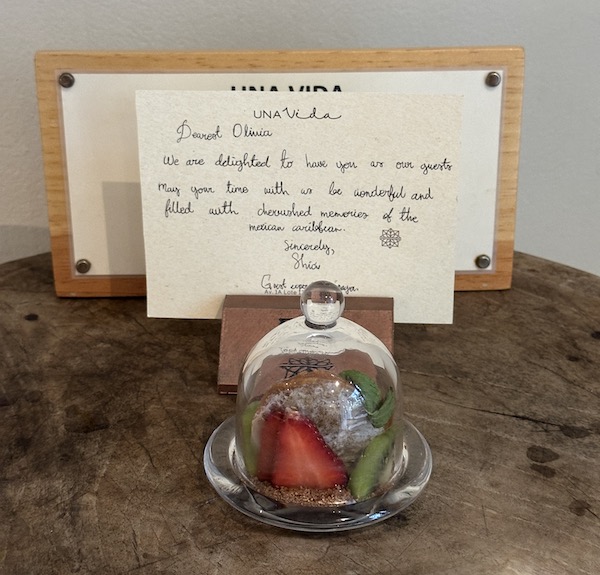 UNA VIDA
UNA Vida
Dearest Olivia
We are delighted to have you as our guests
may your time with us be wonderful and
filled with cherished memories of the
mexican caribbean.
Sincerely,
Guest
Av.